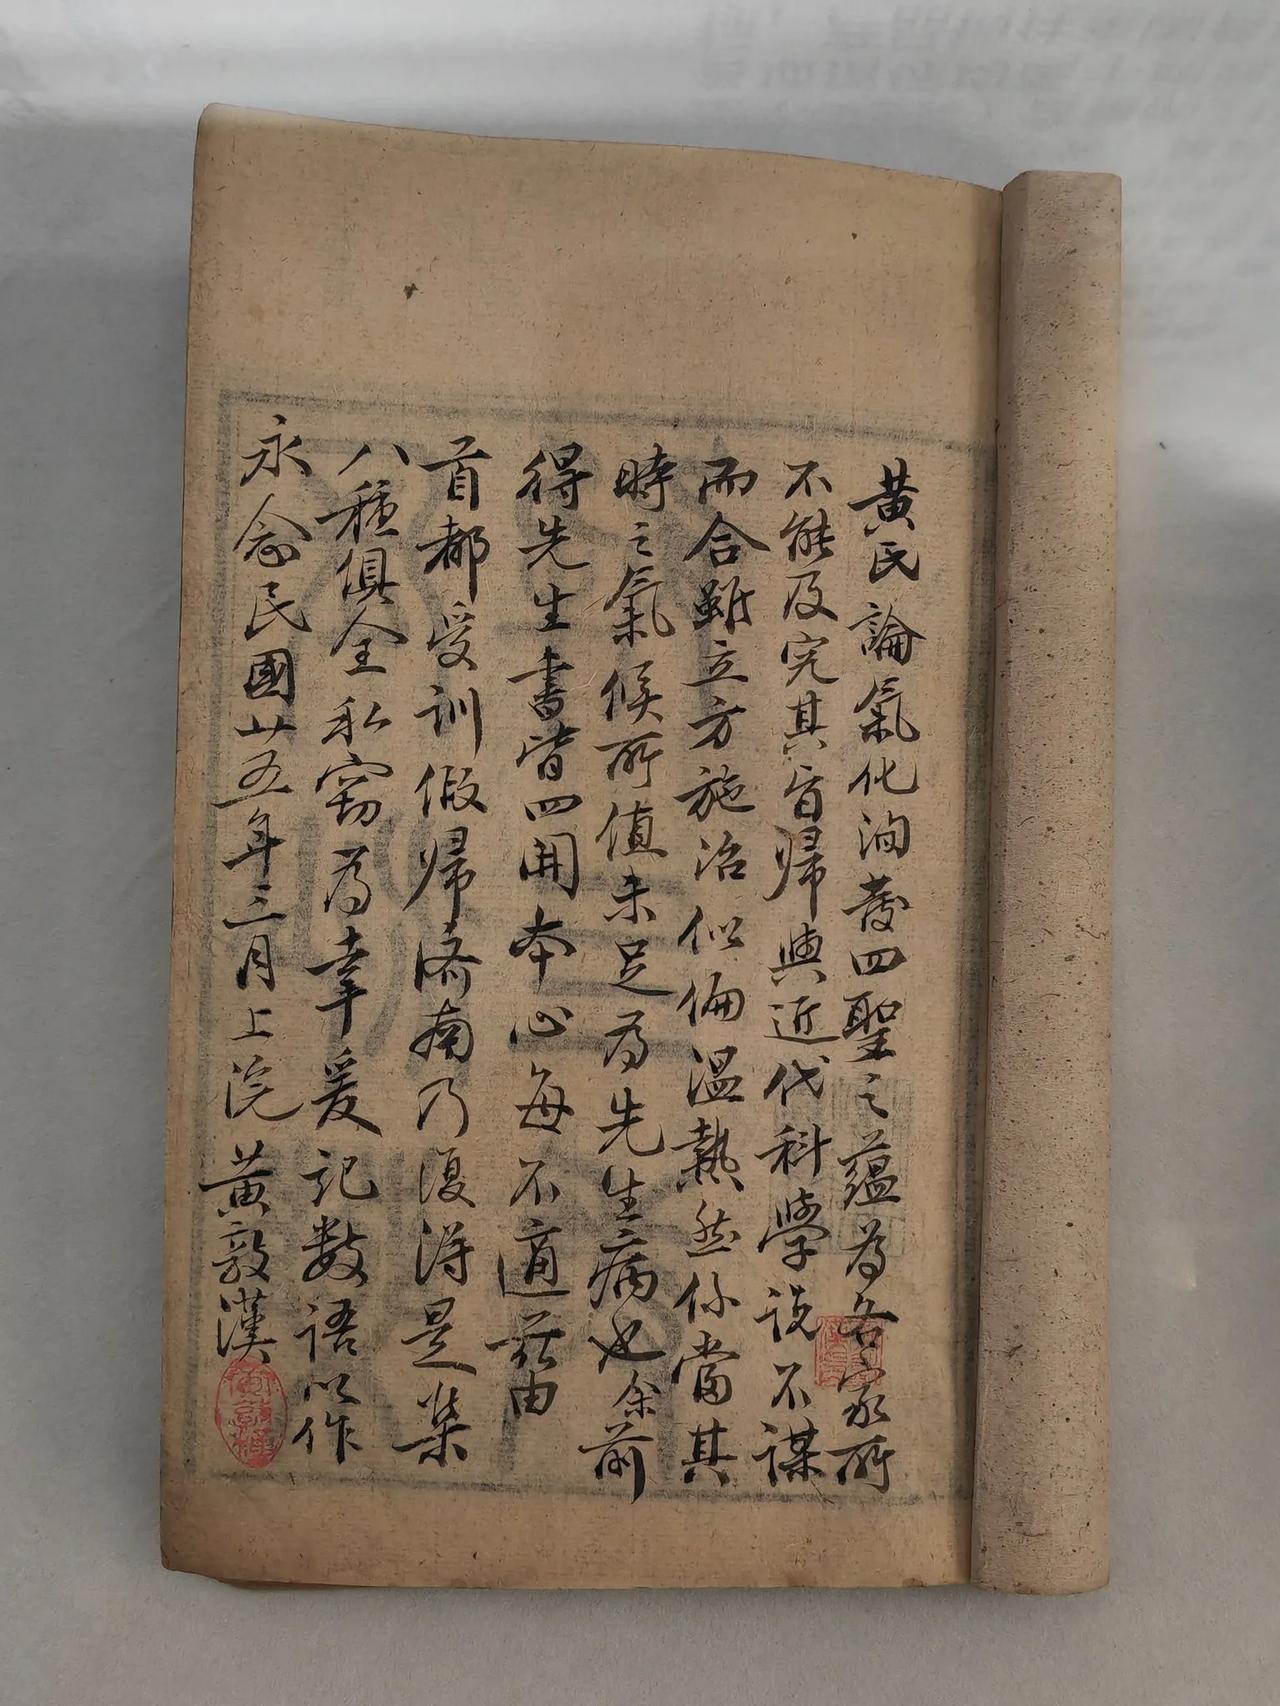 黃氏論氣化洵發四聖之蘊為各家所
不能及究其旨歸與近代科學說不謀
而合雖立方施治似偏溫熱然係當其
時之氣候所值未足為先生病也余前
得先生書皆四開本心每不適茲由
首都受訓假歸濟南乃復得是集
八種俱全私竊為幸爰記數語以作
永念民國廿五年三月上浣黃敦漢